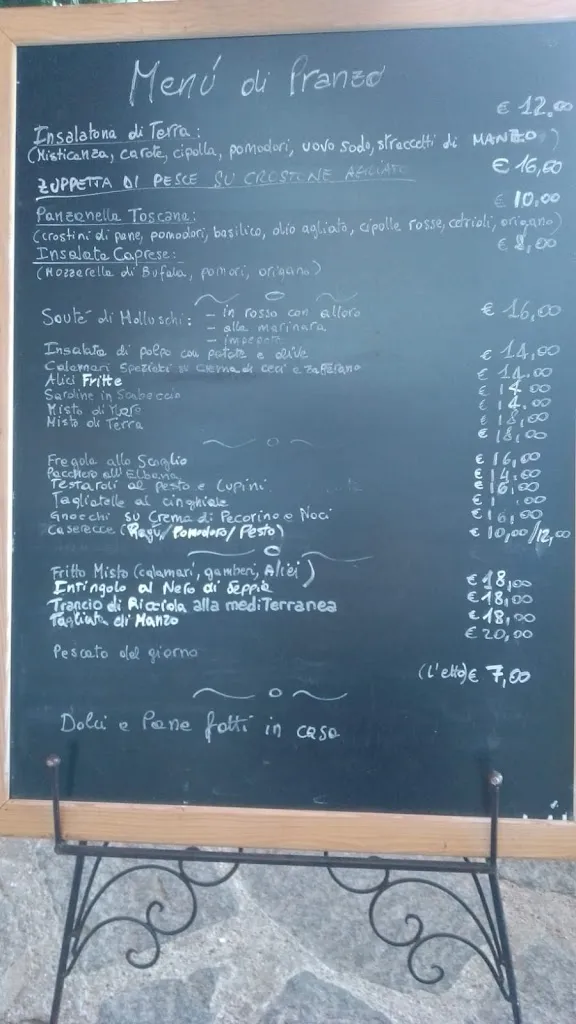 Menú di Pranzo
€ 12.00
Insalatona di Terra:
(Misticanza, carote, cipolla, pomodori, uovo sodo, straccetti di MANZO)
€ 16,00
ZUPPETTA DI PESCE SU CROSTONE AGLIATO
€ 10.00
Panzanella Toscana:
(crostini di pane, pomodori, basilico, olio agliato, cipolle rosse, cetrioli, origano)
€ 8,00
Insalata Caprese:
(Mozzarella di Bufala, pomori, origano)
Souté di Molluschi: - in rosso con alloro € 16,00
- alla marinara
- impepata
Insalata di polpo con patate e olive € 14,00
Calamari speziati su crema di ceci e zafferano € 14.00
Alici Fritte € 14,00
Sardine in Sonbeccio € 14.00
Misto di Mare € 18,00
Misto di Terra € 18,00
Fregola allo Scoglio € 16,00
Pacchero all'Elbana € 14.00
Testaroli al pesto e Lupini € 16,00
Tagliatelle al cinghiale €
Gnocchi su Crema di Pecorino e Noci € 16,00
Caserecce (Ragù/Pomodoro/Pesto) € 10,00/12,00
Fritto Misto (calamari, gamberi, Alici) € 18,00
Intingolo al Nero di Seppia € 18,00
Trancio di Ricciola alla mediTerranea € 18,00
Tagliata di Manzo € 20,00
Pescato del giorno
(l'etto) € 7,00
Dolci e Pane fatti in casa